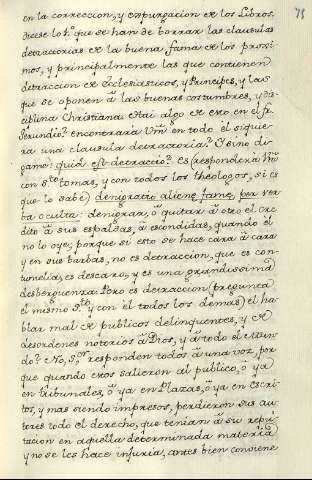 75
en la correccion, y expurgacion de los Libros.
dicese lo 1.º que se han de borrar las clausulas
detractorias de la buena fama de los proxi-
mos, y principalmente las que contienen
detraccion de Eclesiasticos, y Principes, y las
que se oponen â las buenas costumbres, y dis-
ciplina Christiana. Hai algo de eso en el fr.
Gerundio? encontrarà Vm̃ en todo èl siquie-
ra una clausula detractoria? O sino di-
game: quid est detractio? Es (responderà Vm̃
con S.to tomas, y con todos los theologos, si es
que lo sabe) denigratio alienæ famæ per ver-
ba oculta: denigrar, ô quitar â otro el cre-
dito â sus espaldas, â escondidas, quando èl
no lo oye; porque si esto se hace cara â cara
y en sus barbas, no es detraccion, que es con-
tumelia, es descaro, y es una grandissima
desberguenza. Pero es detraccion (pregunta
el mismo S.to, y con èl todos los demas) el ha-
blar mal de publicos delinquentes, y de
desordenes notorios â Dios, y â todo el Mun-
do? No, S.or responden todos â una voz, por
que quando esos salieron al publico, ô ya
en Tribunales, ô ya en Plazas, ô ya en Escri-
tos, y mas siendo impresos, perdieron sus au-
tores todo el derecho, que tenian â su repu-
tacion en aquella determinada materia
y no se les hace injuria, antes bien conviene